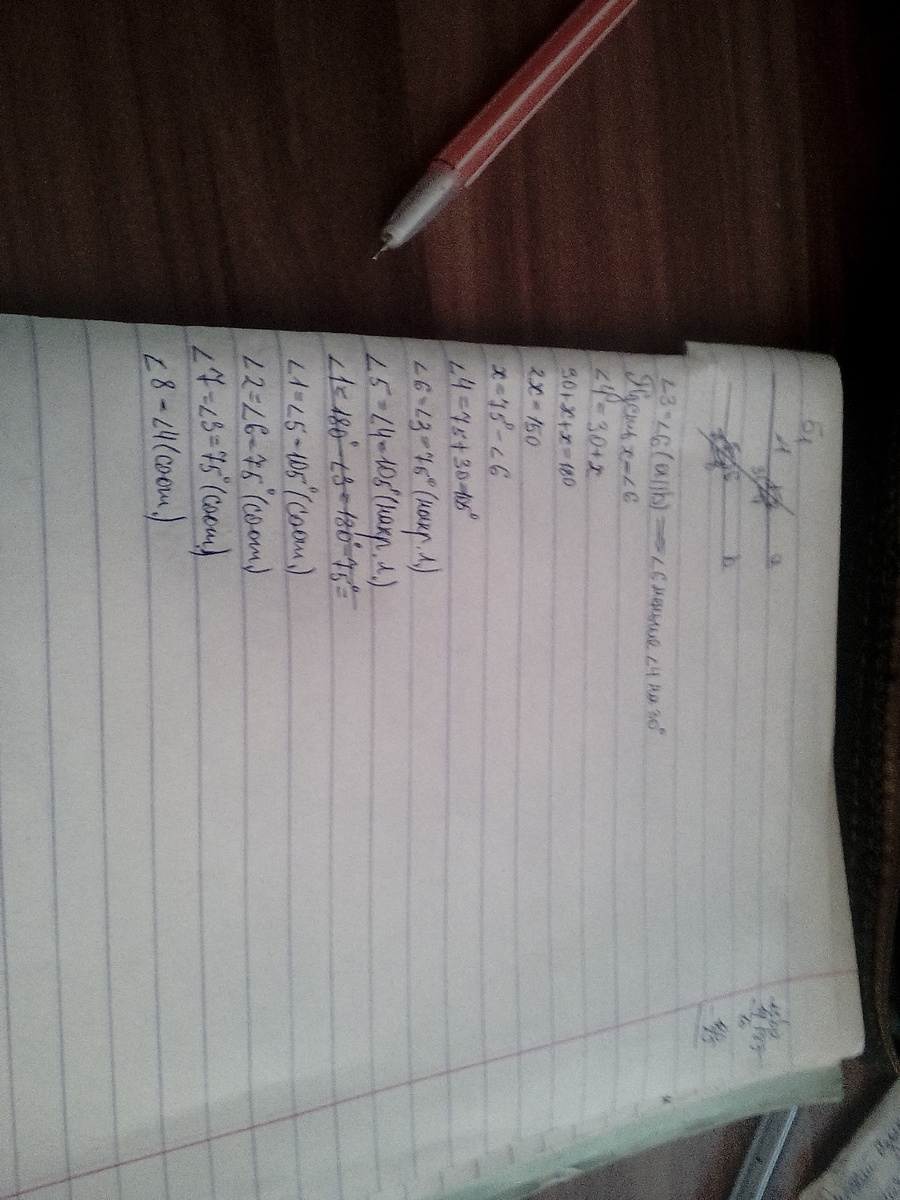 б)
а
b
∠3 = ∠6 (a||b) => ∠6 меньше ∠4 на 30°
Пусть x = ∠6
∠4 = 30 + x
30 + x + x = 180
2x = 150
x = 75° - ∠6
∠4 = 75 + 30 = 105°
∠6 = ∠3 = 75° (накр. л.)
∠5 = ∠4 = 105° (накр. л.)
∠1 = 180° - ∠3 = 180° - 75° =
∠1 = ∠5 = 105° (соот.)
∠2 = ∠6 = 75° (соот.)
∠7 = ∠3 = 75° (соот.)
∠8 = ∠4 (соот.)